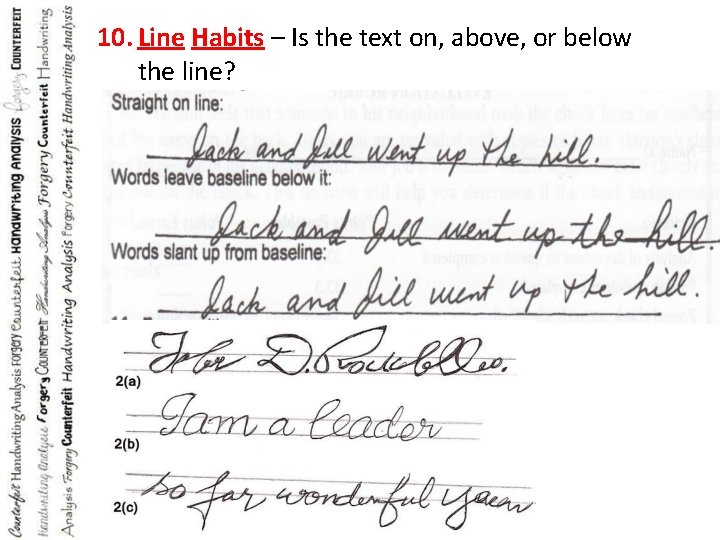 10. Line Habits – Is the text on, above, or below
the line?
Straight on line:
Jack and Jill went up the hill.
Words leave baseline below it:
Jack and Jill went up the hill.
Words slant up from baseline:
Jack and Jill went up the hill.
2(a)
I am a leader
2(b)
so far wonderful
2(c)
Counterfeit Handwriting Analysis Forgery Counterfeit Handwriting Analysis Forgery COUNTERFEIT
Handwriting Analysis Forgery COUNTERFEIT Handwriting Analysis Forgery Counterfeit Handwriting
Analysis Forgery Counterfeit Handwriting Analysis Forgery Counterfeit Handwriting Analysis